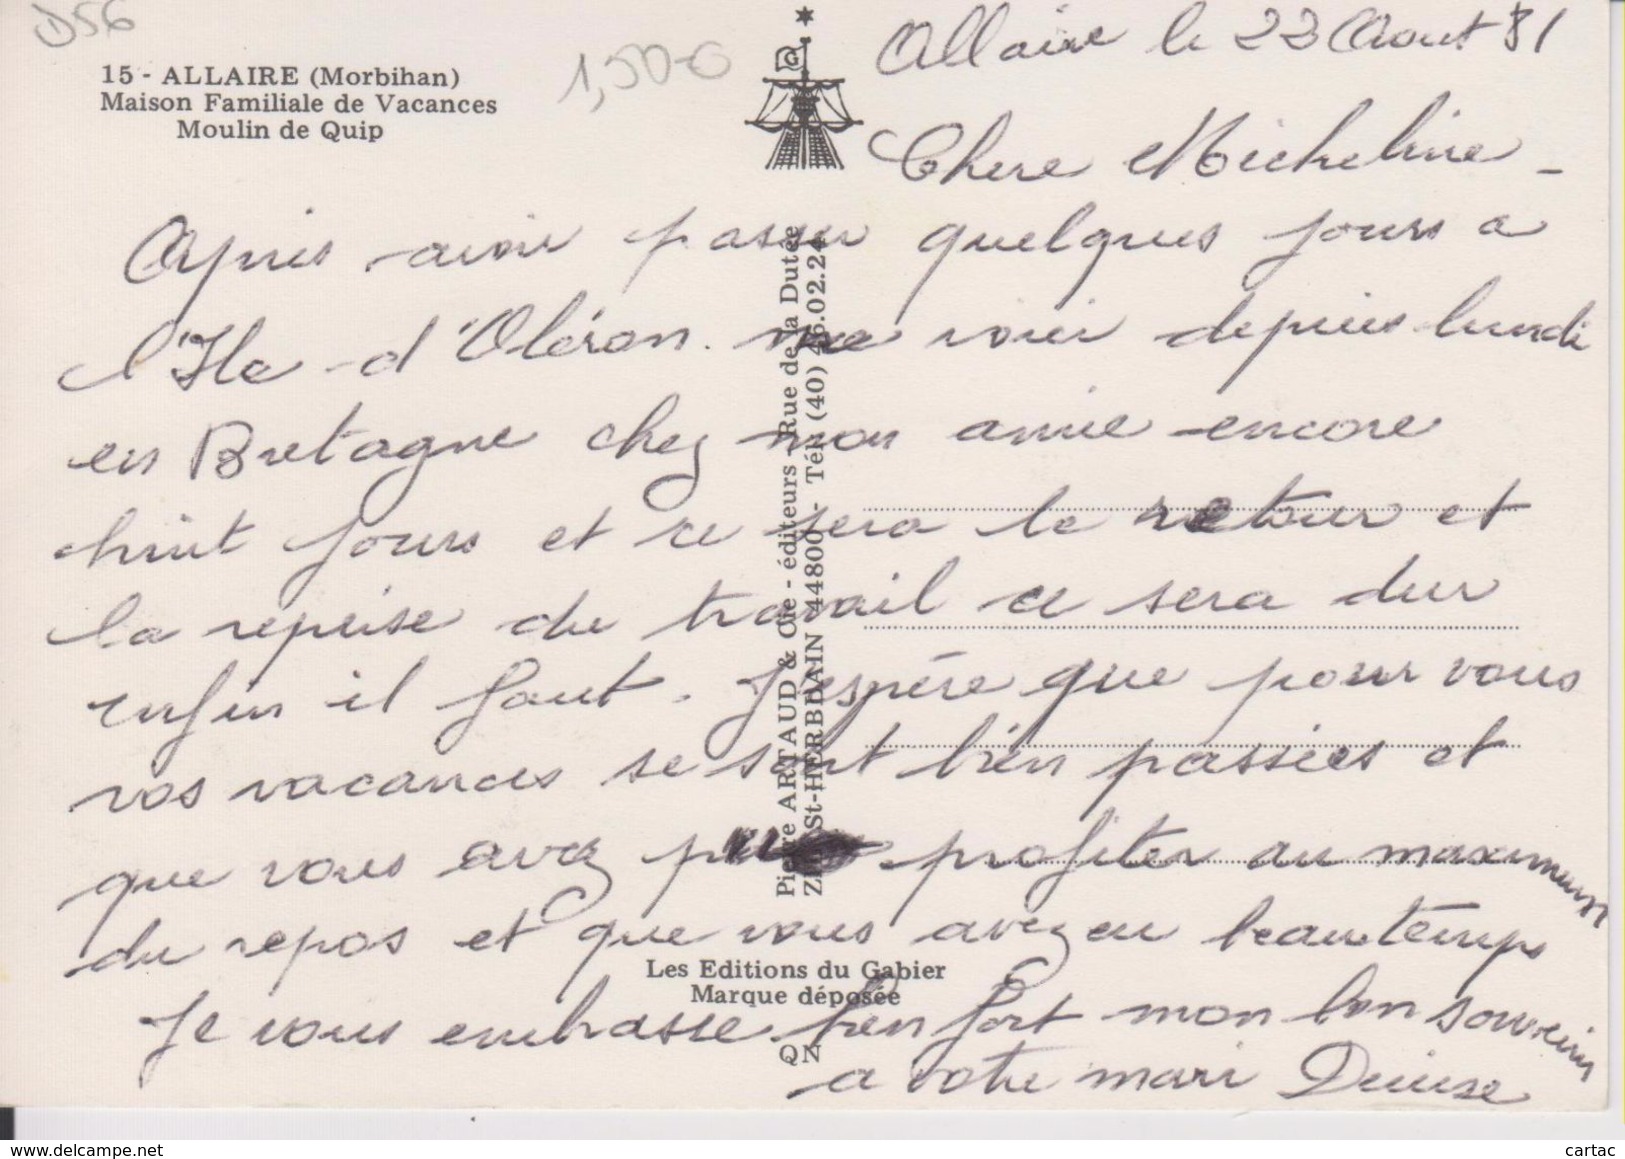 D56
1,50 €
15 - ALLAIRE (Morbihan)
Maison Familiale de Vacances
Moulin de Quip
G
Allaire le 22 Aout 81
Chere Micheline -
Apres avoir passer quelques jours a
l'Ile d'Oléron. me voici depuis lundi
en Bretagne chez mon amie encore
huit jours et ce sera le retour et
la reprise du travail ce sera dur
enfin il faut. J'espére que pour vous
vos vacances se sont bien passées et
que vous avez profiter au maximum
du repos et que vous avez eu beau temps
Je vous embrasse bien fort mon bon souvenir
a votre mari Denise
Pierre ARTAUD & Cie - éditeurs - Rue de la Dutée
St-HERBLAIN 44800 - Tél. (40) 46.02.24
Les Editions du Gabier
Marque déposée
QN
www.delcampe.net
cartac